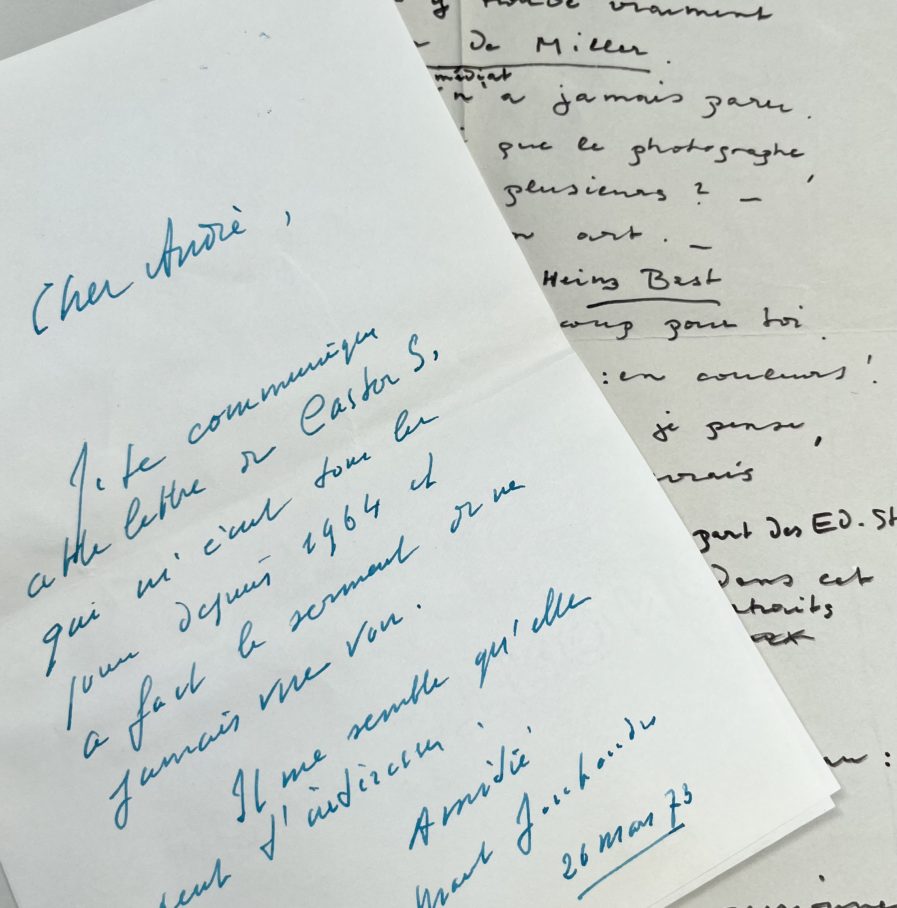 Cher André,
Je te communique
cette lettre de Castor S.
qui m'écrit tous les
jours depuis 1964 et
a fait le serment de ne
jamais me voir.
Il me semble qu'elle
peut t'intéresser.
Amitié
Marcel Jouhandeau
26 mars 73
vraiment
de Miller
n'a jamais paru.
que le photographe
plusieurs ? _
art. _
Heinz Bast
pour toi.
: en couleurs !
je pense,
part des ED. St
Dans cet